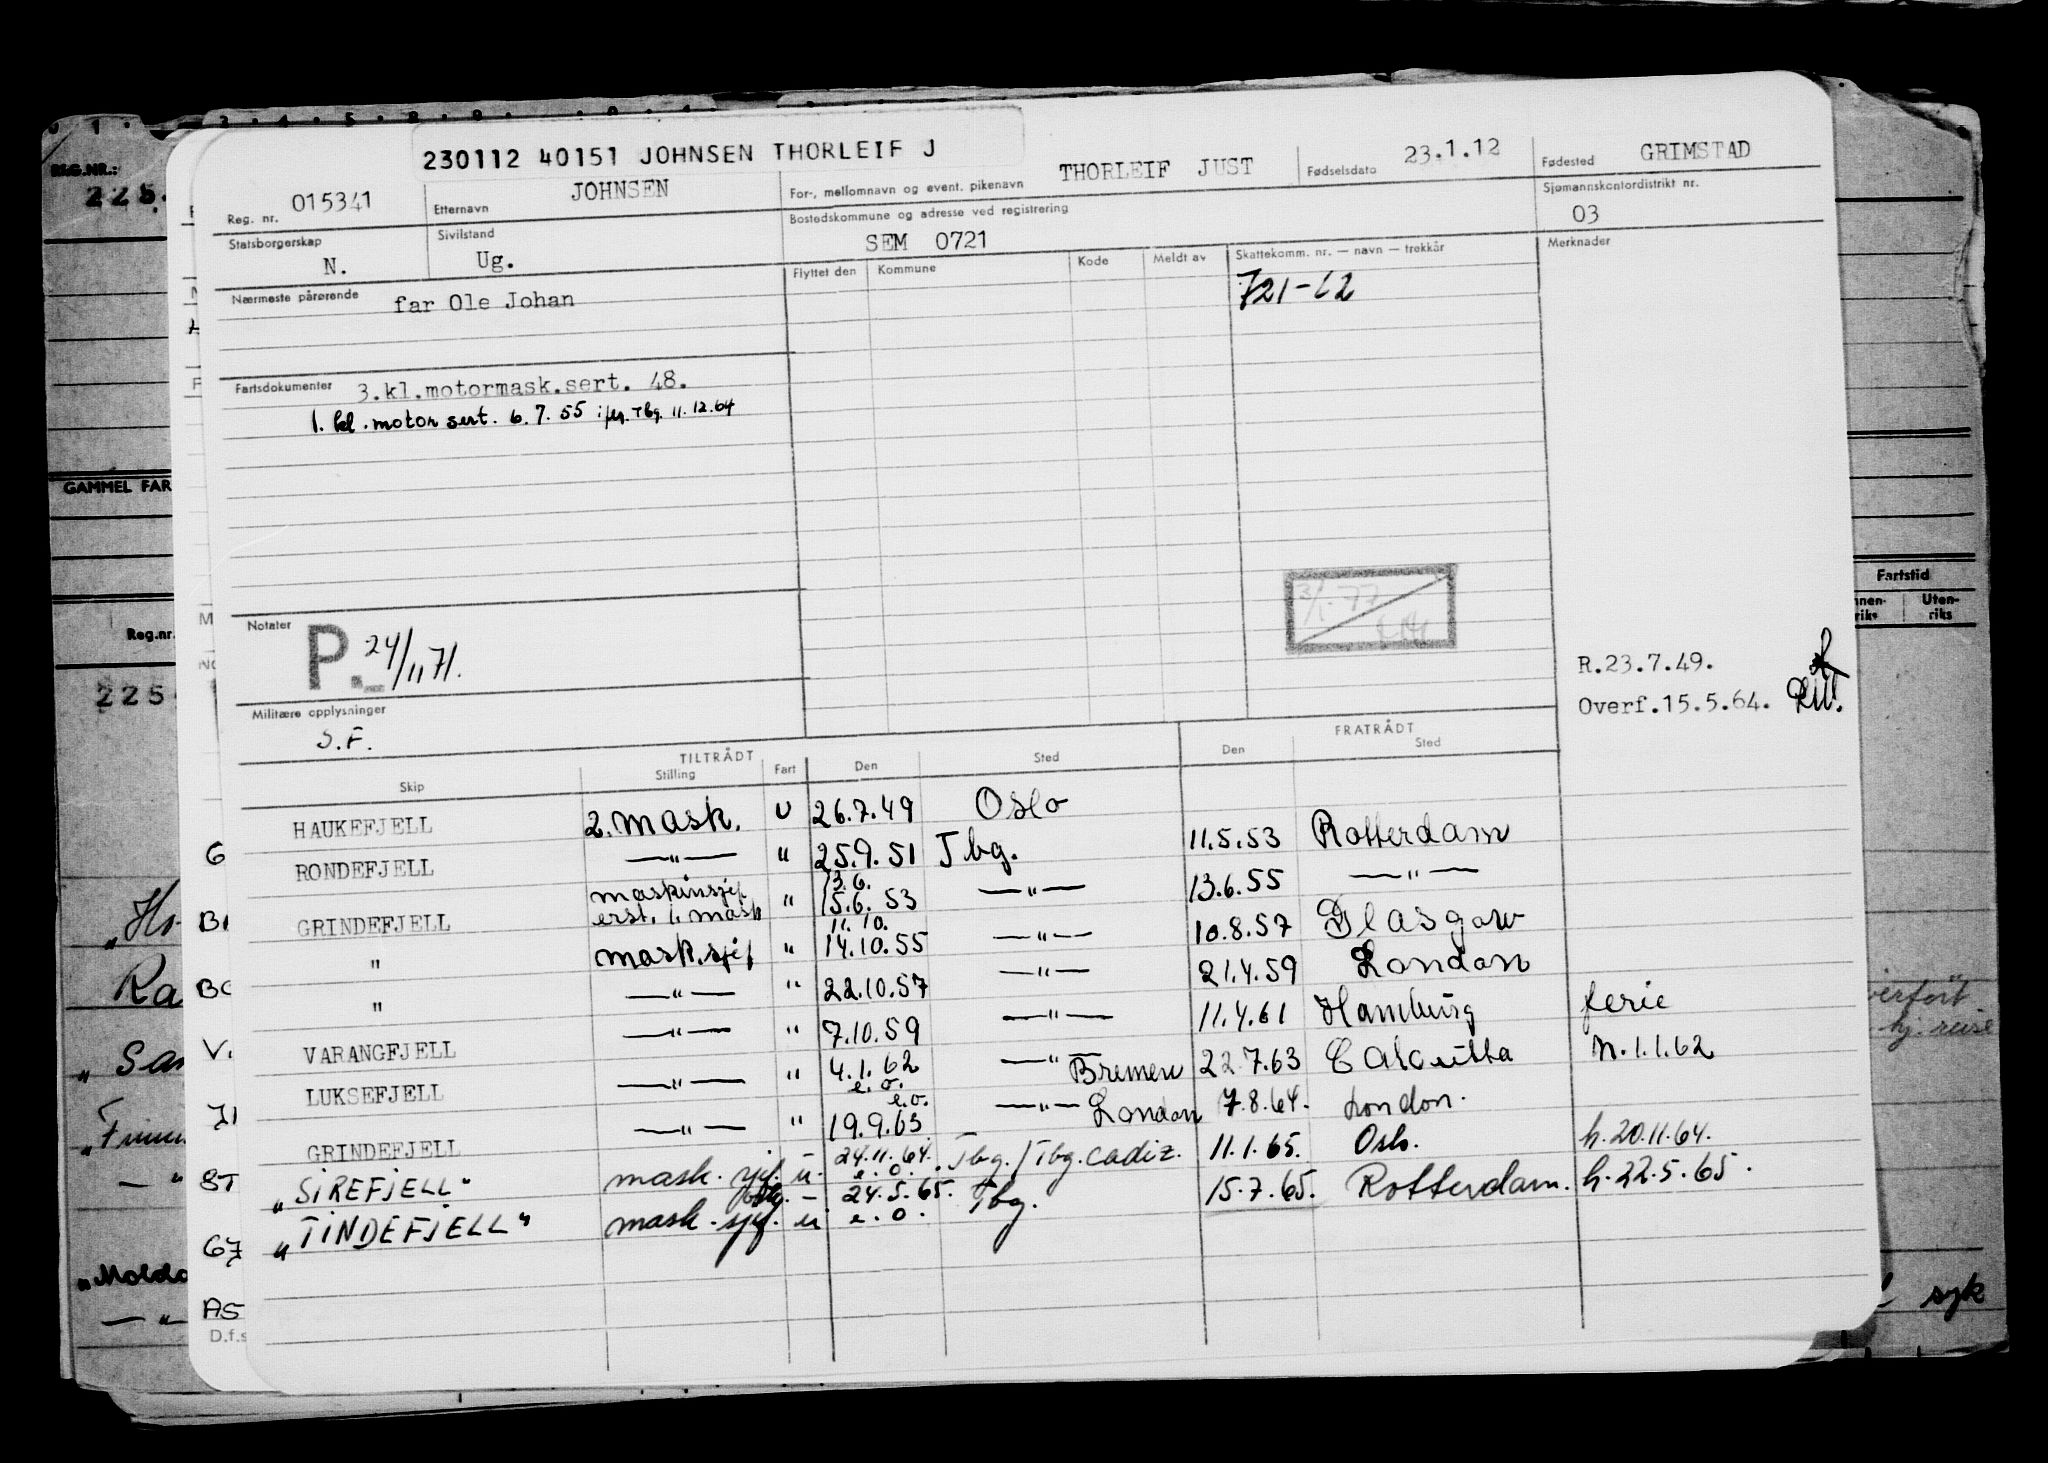 230112 40151 JOHNSEN THORLEIF J
Reg. nr. 015341 Etternavn JOHNSEN For-, mellomnavn og event. pikenavn THORLEIF JUST Fødselsdato 23.1.12 Fødested GRIMSTAD
Statsborgerskap N. Sivilstand Ug. Bostedskommune og adresse ved registrering SEM 0721 Sjømannskontordistrikt nr. 03
Nærmeste pårørende far Ole Johan Flyttet den Kommune Kode Meldt av Skattekomm. nr. — navn — trekkår Merknader
721-62
Fartsdokumenter 3.kl.motormask.sert. 48.
1. kl. motor sert. 6.7.55 Tbg. 11.12.64
Notater P. 24/11 71.
R.23.7.49.
Overf.15.5.64.
Militære opplysninger
S.F.
TILTRÅDT FRATRÅDT
Skip Stilling Fart Den Sted Den Sted
HAUKEFJELL 2. mask. U 26.7.49 Oslo
RONDEFJELL —"— " 25.9.51 Tbg. 11.5.53 Rotterdam
GRINDEFJELL maskinsjef erst. 1. mask " 13.6. 15.6.53 —"— 13.6.55 —"—
" mask.sjef " 11.10. 14.10.55 —"— 10.8.57 Glasgow
" —"— " 22.10.57 —"— 21.4.59 London
VARANGFJELL —"— " 7.10.59 —"— 11.4.61 Hamburg ferie
LUKSEFJELL —"— " 4.1.62 e.o. —"— Bremen 22.7.63 Calcutta n.1.1.62
GRINDEFJELL —"— " e.o. 19.9.63 —"— London 7.8.64. London.
"SIREFJELL" mask. sjef. u. 24.11.64. e.o. Tbg./Tbg. Cadiz. 11.1.65. Oslo. h.20.11.64.
"TINDEFJELL" mask. sjef. u 24.5.65. e.o. Tbg. 15.7.65. Rotterdam. h.22.5.65.
REG.NR.:
GAMMEL FAR
Reg.nr.
Fartstid
Uten-
riks
225
Ra
San
"Moldo
syk
D.f.s